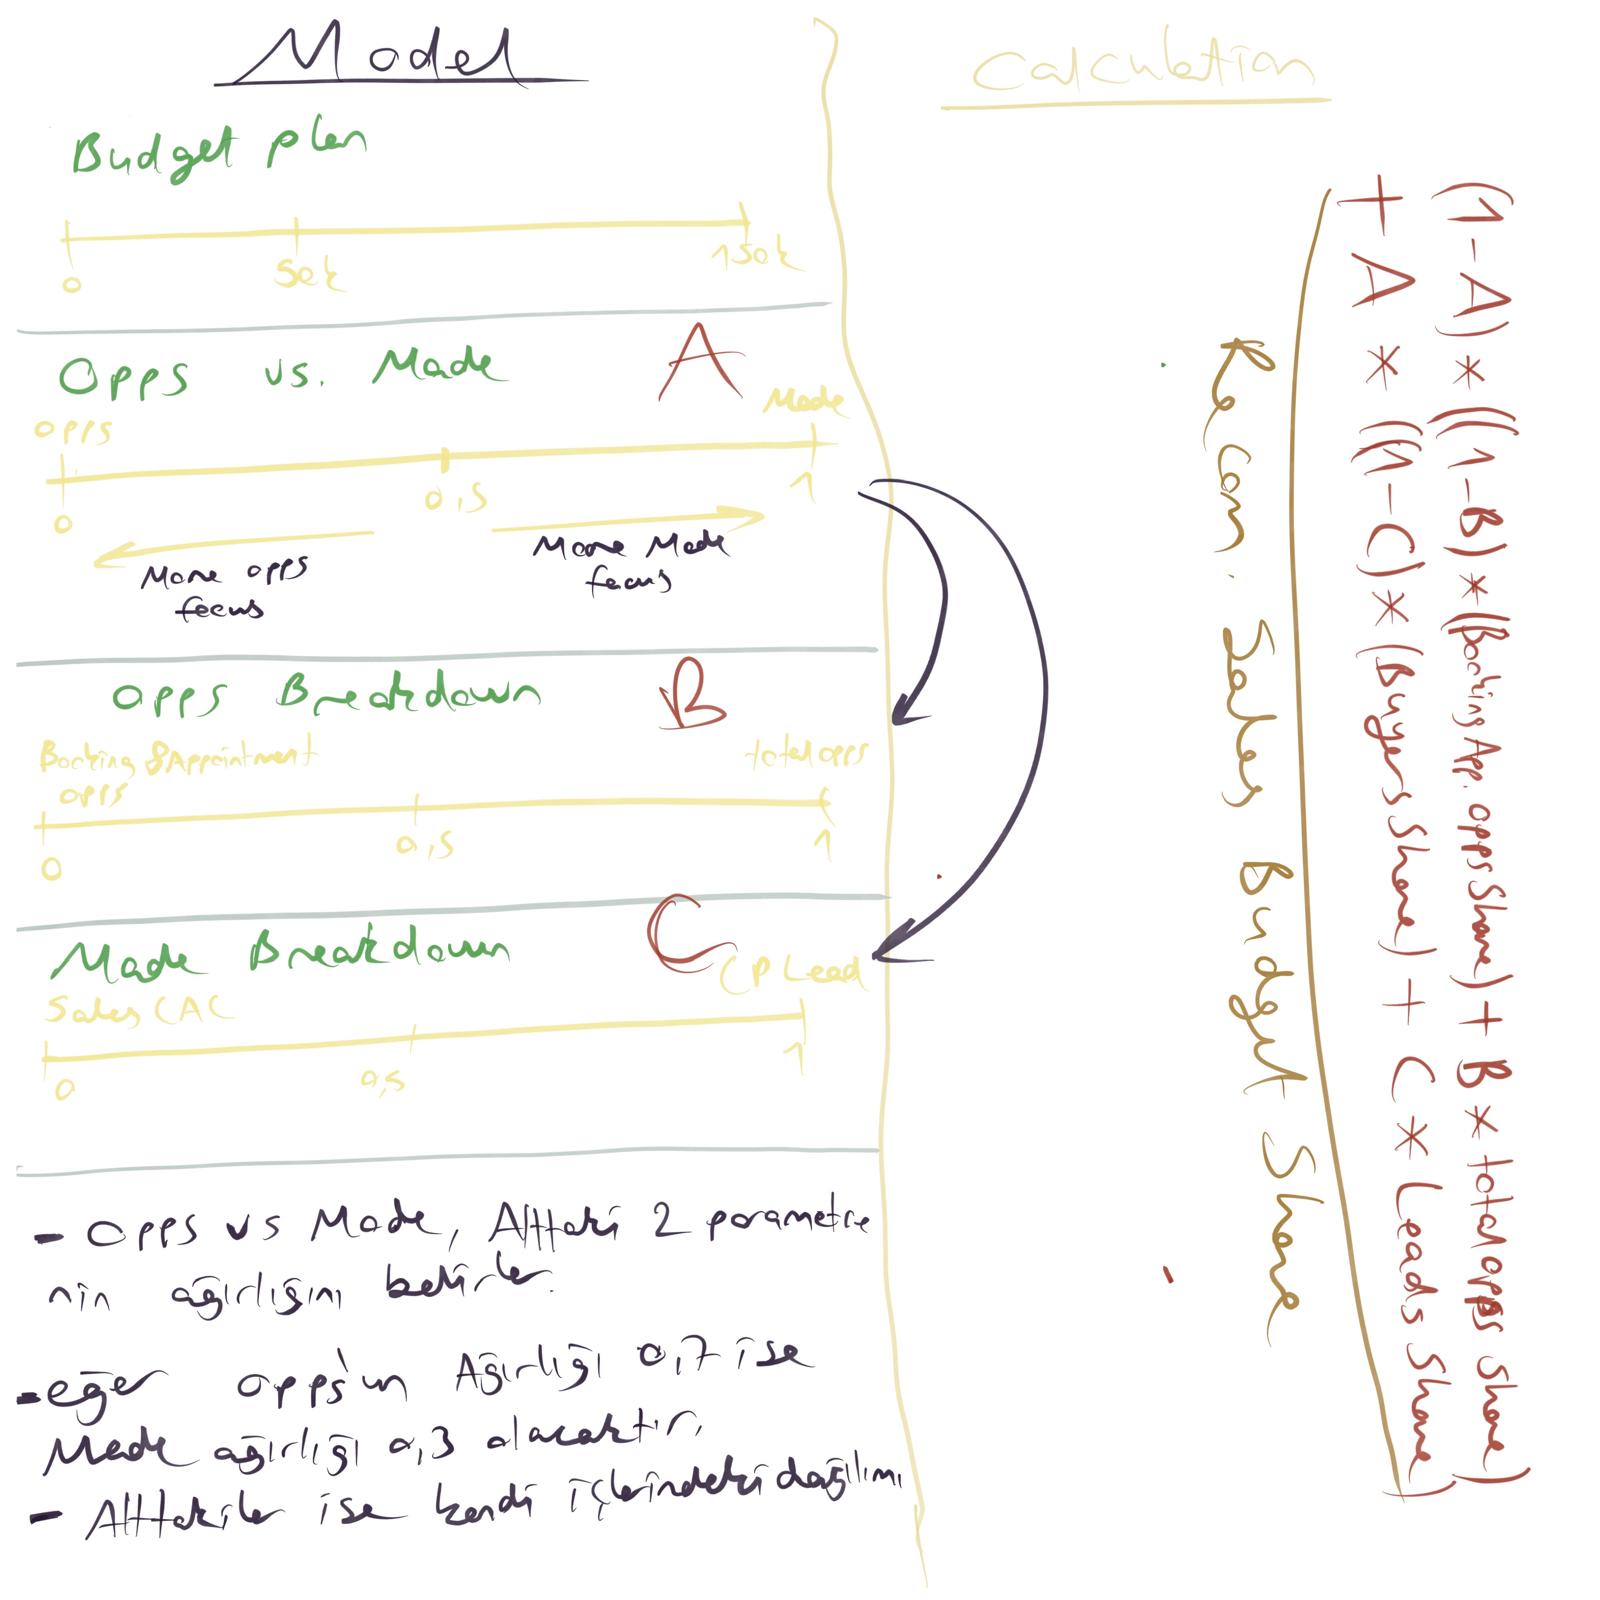 Model
Budget plan
0
50k
150k
Opps vs. Made
A
opps
Made
0
0,5
1
More opps
focus
More Made
focus
Opps Breakdown
B
Booking & Appointment
opps
total opps
0
0,5
1
Made Breakdown
C
Sales CAC
CP Lead
0
0,5
1
- Opps vs Made, Alttaki 2 parametre
nin ağırlığını belirler.
- eğer opps'un Ağırlığı 0,7 ise
Made ağırlığı 0,3 olacaktır.
- Alttakiler ise kendi içlerindeki dağılımı
Calculation
(1-A) * ((1-B) * (Booking App. opps Share) + B * total opps Share)
+ A * ((1-C) * (Buyers Share) + C * Leads Share)
Recom. Sales Budget Share